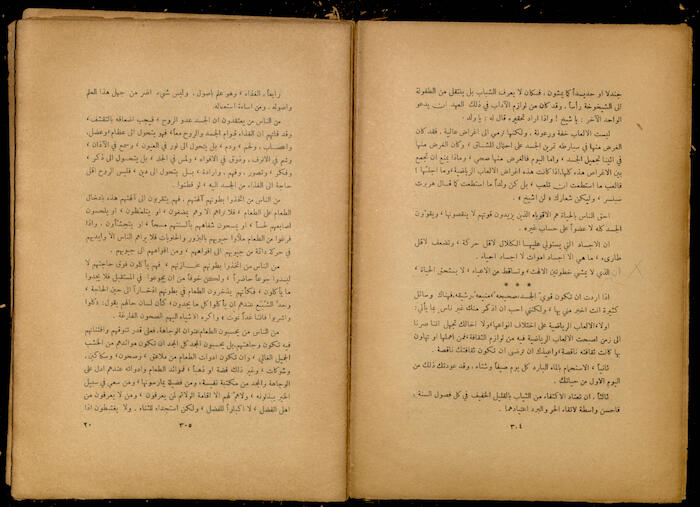 جندلاً او حديداً كما يشون ، فكان لا يعرف الشباب بل ينتقل من الطفولة
الى الشيخوخة رأساً . وقد كان من لوازم الآداب في ذلك العهد ان يدعو
الواحد الآخر : يا شيخ ! واذا اراد تحقيره قال له : يا ولد .
ليست الالعاب خفة ورعونة ، ولكنها ترمي الى اغراض عالية . فقد كان
الغرض منها في سبارطه تمرين الجسد على احتمال المشاق ، وكان الغرض منها
في اثينا تجميل الجسد ، واما اليوم فالغرض منها صحي ، وماذا يمنع ان تجمع
بين الاغراض هذه كلها. اذا كانت هذه اغراض الالعاب الرياضية وما اجلها !
فالعب ما استطعت ان تلعب ، بل كن ولداً ما استطعت كما قال هربرت
سبنسر ، وليكن شعارك « لن اشيخ » .
احق الناس بالحياة هم الاقوياء الذين يزيدون قوتهم لا ينقصونها ، ويقوّون
الجسد كله لا عضواً على حساب غيره .
ان الاجساد التي يستولي عليها الكلال لأقل حركة ، وتضعف لاقل
طارىء ، ما هي الا اجساد اموات لا اجساد احياء .
ان الذي لا يمشي خطوتين الا لهث ، وتساقط من الاعياء ، لا يستحق الحياة .
* * *
اذا اردت ان تكون قوي الجسد، صحيحه، منيعه، رشيقه، فهناك وسائل
كثيرة انت اخبر مني بها ، ولكنني احب ان اذكر منك غير ناس بما يأتي :
اولاً، الالعاب الرياضية على اختلاف انواعها، ولا اخالك تجهل اننا صرنا
الى زمن اصبحت الالعاب الرياضية فيه من لوازم الثقافة، فمن اهملها او تهاون
بها كانت ثقافته ناقصة، واعيذك ان ترضى ان تكون ثقافتك ناقصة .
ثانياً ، الاستحمام بالماء البارد كل يوم صيفاً وشتاء ، وقد عودتك ذلك من
اليوم الاول من حياتك .
ثالثاً ، ان تعتاد الاكتفاء من الثياب بالقليل الخفيف في كل فصول السنة ،
فاحسن واسطة لاتقاء الحر والبرد اعتيادهما .
٣٠٤
رابعاً، الغذاء ، وهو علم باصول . وليس شيء اضر من جهل هذا العلم
واصوله ، ومن اساءة استعماله .
من الناس من يعتقدون ان الجسد عدو الروح ، فيجب اضعافه بالتقشف ،
وقد فاتهم ان الغذاء قوام الجسد والروح معاً، فهو يتحول الى عظام، وعضل،
واعصاب، ولحم، ودم ، بل يتحول الى نور في العيون ، وسمع في الآذان ،
وشم في الانوف ، وذوق في الافواه ، ولمس في الجلد ، بل يتحول الى ذكر ،
وفكر، وتصور ، وفهم ، وارادة ، بل يتحول الى دين ، فليس الروح اقل
حاجة الى الغذاء من الجسد اليه ، لو فطنوا .
من الناس من اتخذوا بطونهم آلهتهم ، فهم يتقربون الى آلهتهم هذه بادخال
الطعام على الطعام ، فلا تراهم الا وهم يمضغون ، او يتلمظون ، او يلحسون
اصابعهم لحساً ، او يمسحون شفاههم بألسنتهم مسحاً ، او يتجشأون ، واذا
فرغوا من الطعام ملأوا جيوبهم بالبزور والحلويات فلا يراهم الناس الا وايديهم
في حركة دائمة من جيوبهم الى افواههم ، ومن افواههم الى جيوبهم .
من الناس من اتخذوا بطونهم خزائنهم ، فهم يأكلون فوق حاجتهم لا
ليسدوا جوعاً حاضراً ، ولكن خوفاً من ان يجوعوا في المستقبل فلا يجدوا
ما يأكلون ، فكأنهم يدخرون الطعام في بطونهم ادّخاراً الى حين الحاجة ،
وحدّ الشبع عندهم ان يأكلوا كل ما يجدون، كأن لسان حالهم يقول : «كلوا
واشربوا فاننا غداً نموت» واكره الاشياء اليهم الصحون الفارغة .
من الناس من يحسبون الطعام عنوان الوجاهة، فعلى قدر تنوقهم وافتنانهم
فيه تكون وجاهتهم، بل يحسبون المجد كل المجد ان تكون موائدهم من الخشب
الجميل الغالي ، وان تكون ادوات الطعام من ملاعق ، وصحون، وسكاكين،
وشوكات ، وغير ذلك فضة او ذهباً ، فموائد الطعام وادواته عندهم ادل على
الوجاهة والمجد من مكتبة نفيسة، ومن فضيلة يمارسونها، ومن سعي في سبيل
الخير يبذلونه ، ولا همّ لهم الا اقامة الولائم لمن يعرفون ، ومن لا يعرفون من
اهل الفضل ، لا اكباراً للفضل ، ولكن استجداء للثناء . ولا يغتبطون اذا
٣٠٥
٢٠